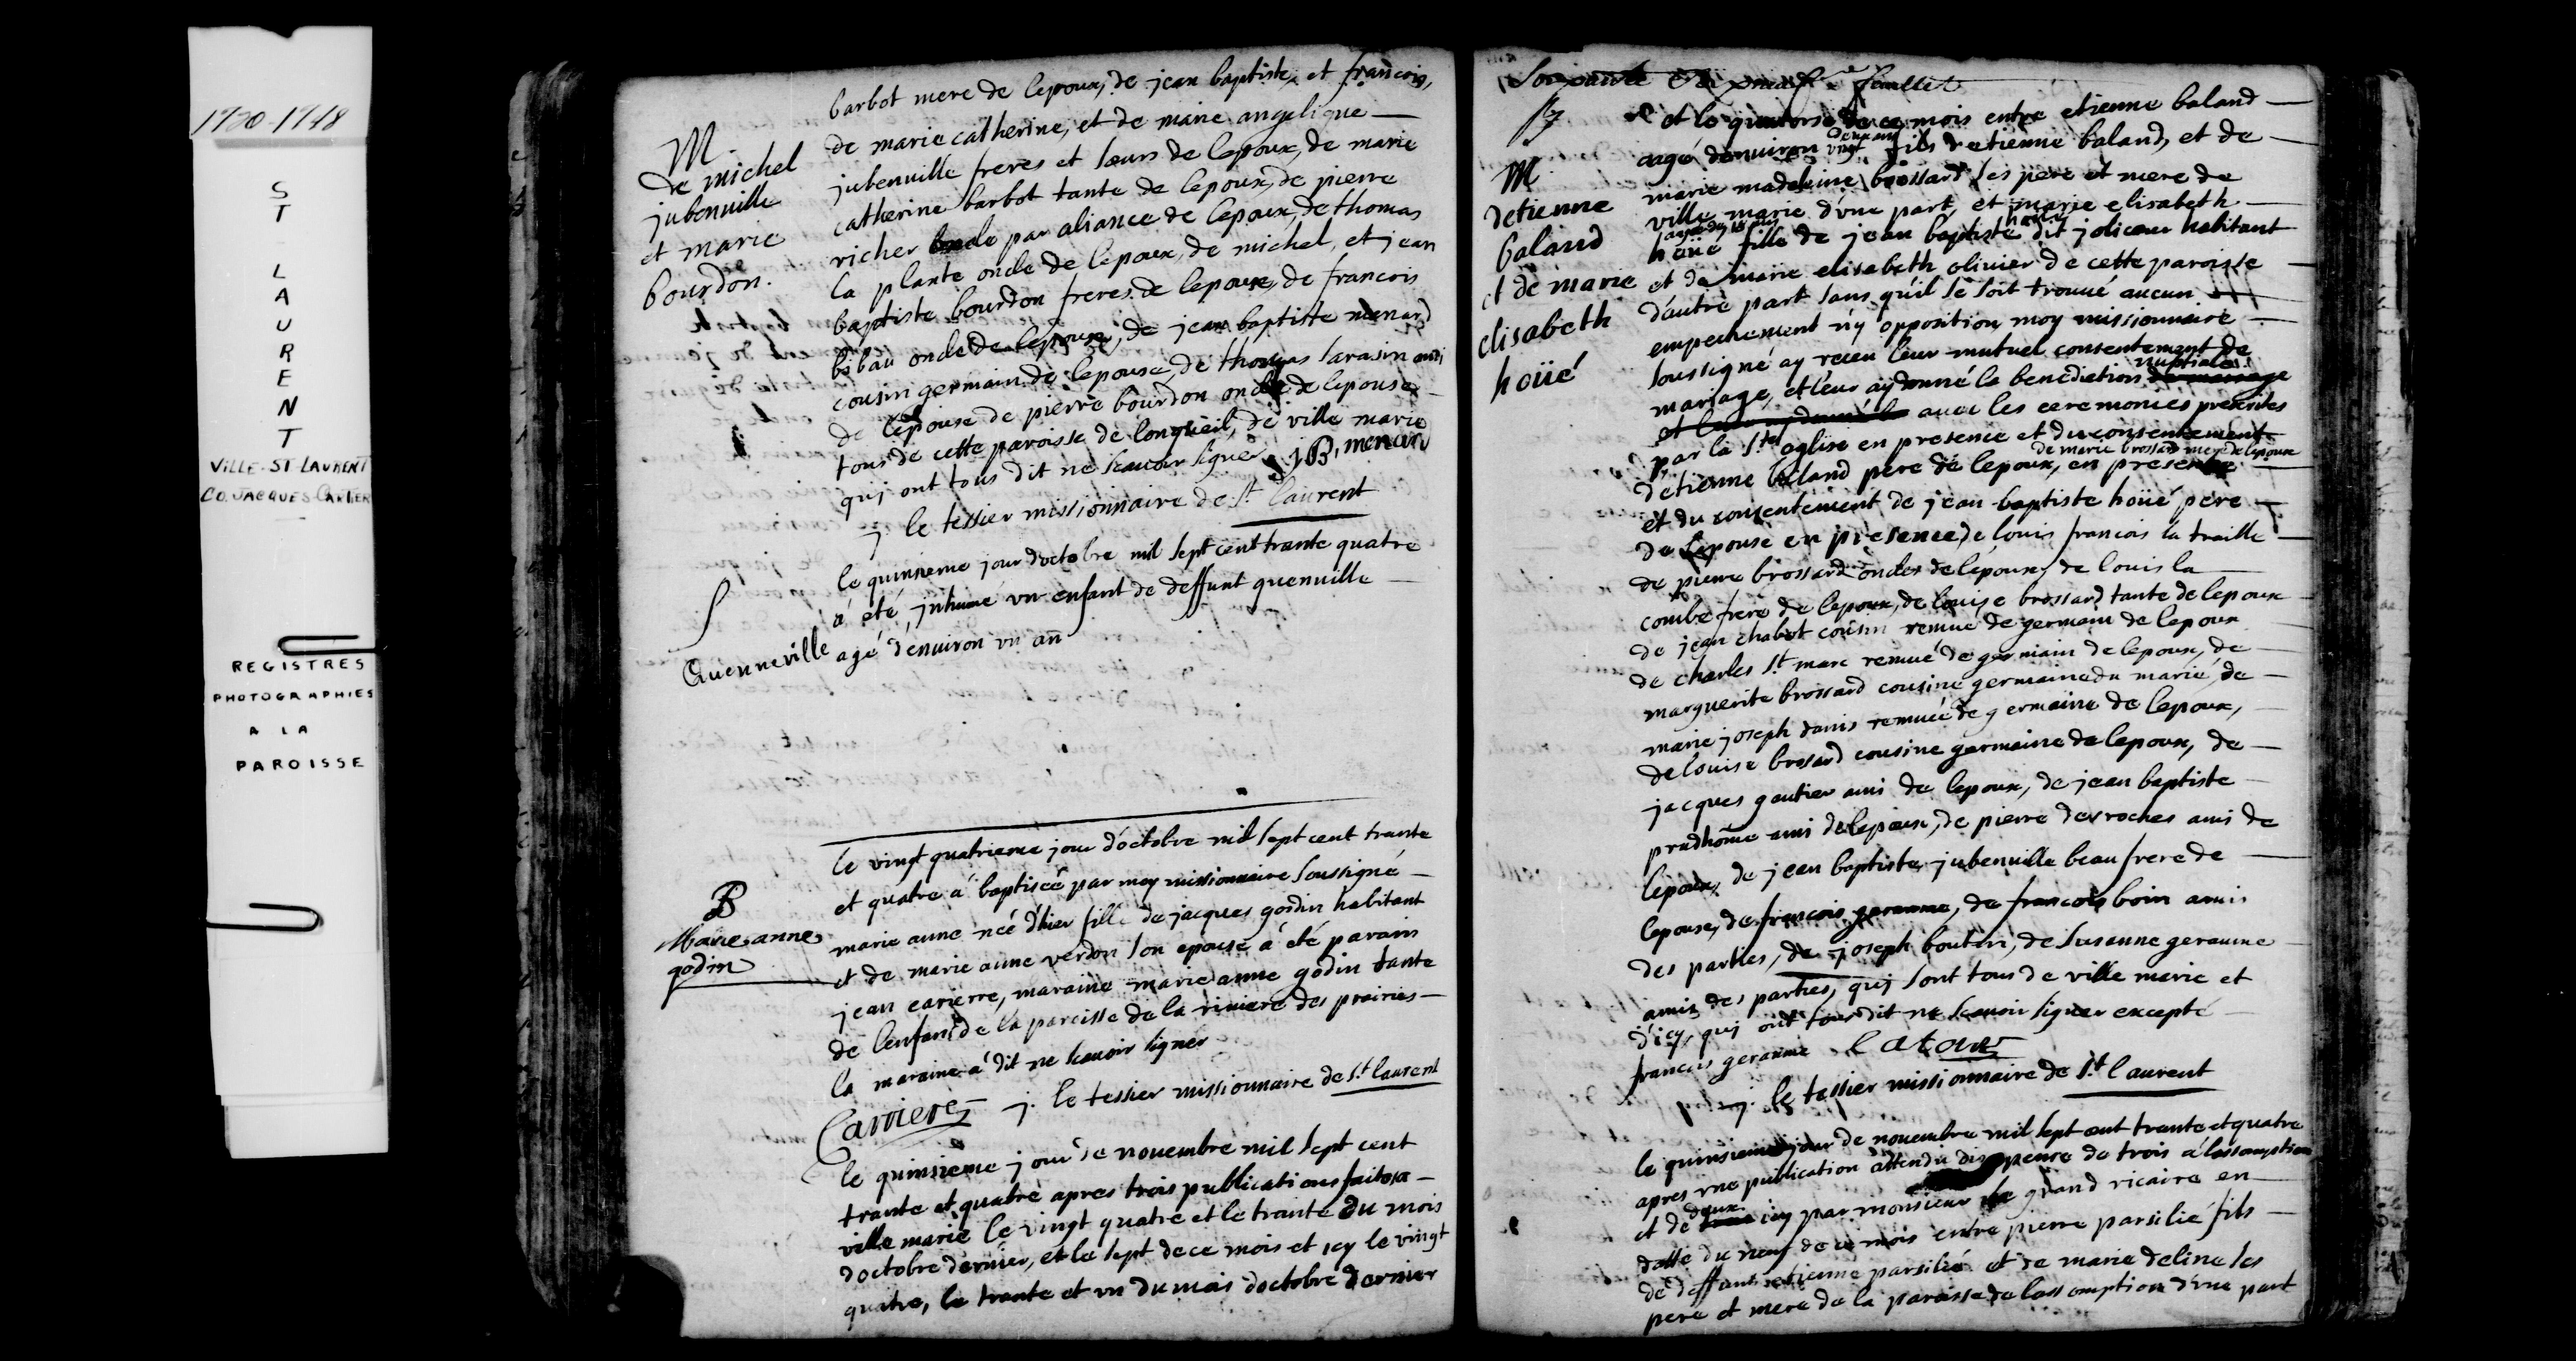 1720-1748
ST LAURENT
VILLE-ST LAURENT
CO. JACQUES-CARTIER
REGISTRES
PHOTOGRAPHIES
A LA
PAROISSE
M.
de michel
jubenuille
et marie
bourdon.
barbot mere de lepoux, de jean baptiste et françois,
de marie catherine, et de marie angelique
jubenuille freres et sœurs de lepoux, de marie
catherine barbot tante de lepoux, de pierre
richer oncle par aliance de lepoux, de thomas
la plante oncle de lepoux, de michel, et jean
baptiste bourdon freres de lepouse, de francois
bibau oncle de lepouse, de jean baptiste menard
cousin germain de lepouse, de thomas sarasin ami
de lepouse de pierre bourdon oncle de lepouse
tous de cette paroisse de longueil, de ville marie
quj ont tous dit ne scauoir signer JB, menard
j. le tessier missionnaire de st laurent
S
Quenneville
le quinsieme jour doctobre mil sept cent trante quatre
a été jnhumé vn enfant de deffunt quenuille
agé denuiron vn an
B
Marie anne
godin
le vingt quatrieme jour d'octobre mil sept cent trante
et quatre a baptisée par moy missionnaire soussigné
marie anne née d'hier fille de jacques godin habitant
et de marie anne verdon son epouse a été parain
jean carierre, maraine marie anne godin tante
de lenfant de la paroisse de la riuiere des prairies
la maraine a dit ne scauoir signer
Carriere j. le tessier missionnaire de St laurent
le quinsieme jour de nouembre mil sept cent
trante et quatre apres trois publications faites a
ville marie le vingt quatre et le trante du mois
doctobre dernier, et le sept de ce mois et icy le vingt
quatre, le trante et vn du mois doctobre dernier
feuillet
M
detienne
baland
et de marie
elisabeth
hoüé
et le quatorse de ce mois entre etienne baland
aagé denuiron vingt deux ans fils detienne baland, et de
marie madeleine brossard ses pere et mere de
ville marie d'vne part, et marie elisabeth
hoüé fille de jean baptiste hoüé dit jolicœur habitant
et de marie elisabeth oliuier de cette paroisse
d'autre part sans qu'il se soit trouué aucun
empechement n'y opposition moy missionnaire
soussigné ay receu leur mutuel consentement de
mariage, et leur ay donné la benediction nuptiale
auec les ceremonies prescrites
par la Ste eglise en presence et du consentement
detienne baland pere de lepoux, de marie brossard mere de lepoux en presence
et du consentement de jean baptiste hoüé pere
de lepouse en presence de louis francois la traille
de pierre brossard oncles de lepoux, de louis la
combe frere de lepoux, de louise brossard tante de lepoux
de jean chabot cousin remué de germain de lepoux
de charles St marc remué de germain de lepoux, de
marguerite brossard cousine germaine du marié, de
marie joseph danis remuée de germaine de lepoux,
de louise brossard cousine germaine de lepoux, de
jacques gautier ami de lepoux, de jean baptiste
prudhome ami de lepoux, de pierre desroches ami de
lepoux, de jean baptiste jubenuille beau frere de
lepouse, de francois geraume, de francois boin amis
des parties, de joseph boutin, de susanne geraume
amis des parties, quj sont tous de ville marie et
d'icy, quj ont tous dit ne scauoir signer excepté
francois geraume Latour
j. le tessier missionnaire de St laurent
le quinsieme jour de nouembre mil sept cent trante et quatre
apres vne publication attendu dispense de trois a lassomption
et de deux icy par monsieur le grand vicaire en
datte du neuf de ce mois entre pierre parsilié fils
de deffunt etienne parsilié et de marie deline ses
pere et mere de la paroisse de lassomption d'vne part